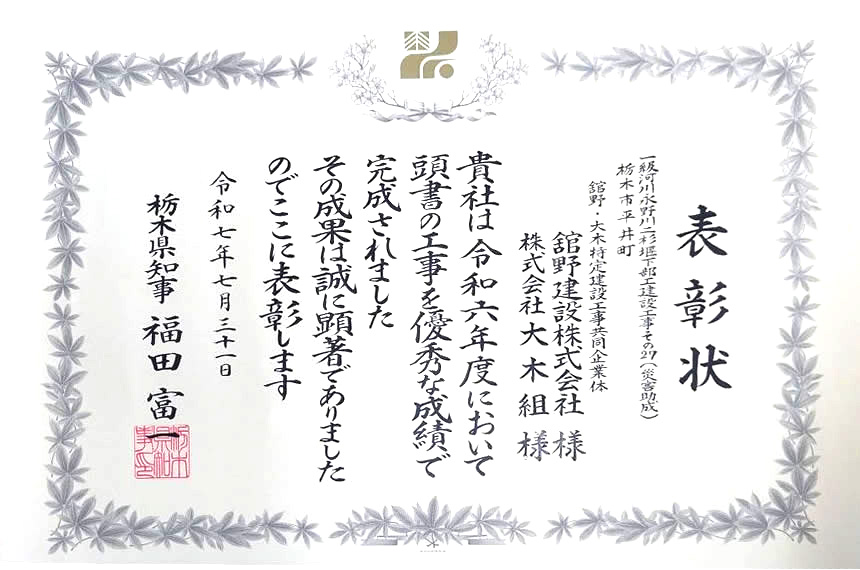 表彰状
一級河川永野川二杉堰下部工建設工事・その27(災害助成)
栃木市平井町
舘野・大木特定建設工事共同企業体
舘野建設株式会社 様
株式会社大木組 様
貴社は令和六年度において
頭書の工事を優秀な成績で
完成されました
その成果は誠に顕著でありました
のでここに表彰します
令和七年七月三十一日
栃木県知事 福田富一
栃木県知事之印